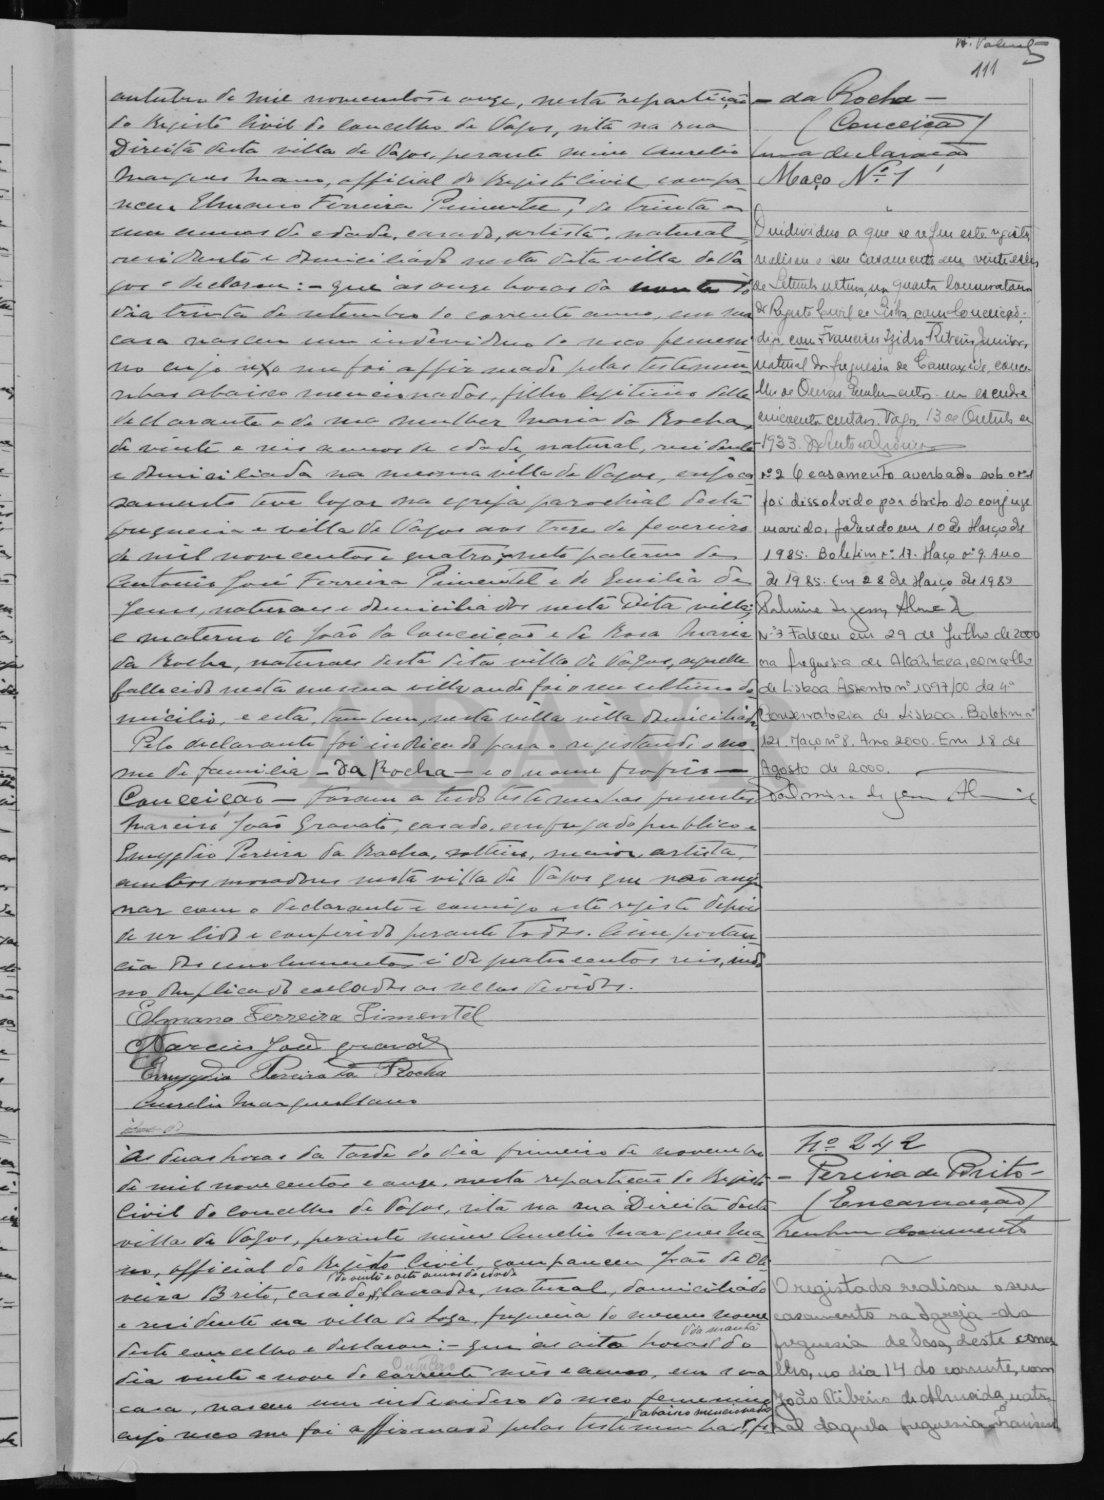 111
outubro de mil novecentos e onze, nesta repartição
do Registo Civil do concelho de Vagos, sita na rua
Direita desta villa de Vagos, perante mim Aurelio
Marques Mano, official do Registo Civil, compa-
receu Elmano Ferreira Pimentel, de trinta e
um annos de edade, casado, artista, natural,
residente e domiciliado nesta dita villa de Va
gos e declarou: - que ás onze horas da noute do
dia trinta de setembro do corrente anno, em sua
casa nasceu um individuo do sexo femeni-
no cujo sexo me foi affirmado pelas testemu-
nhas abaixo mencionadas, filho legitimo delle
declarante e de sua mulher Maria da Rocha,
de vinte e seis annos de edade, natural, residente
e domiciliada na mesma villa de Vagos, cujo ca
samento teve logar na egreja parochial desta
freguesia e villa de Vagos aos treze de fevereiro
de mil novecentos e quatro, neto paterno de
Antonio José Ferreira Pimentel e de Emilia de
Jesus, naturaes e domiciliados nesta dita villa;
e materno de João da Conceição e de Rosa Maria
da Rocha, naturaes desta dita villa de Vagos, aquelle
fallecido nesta mesma villa onde foi o seu ultimo do
micilio, e esta, tambem, nesta villa villa domiciliada
Pelo declarante foi indicado para o registando o no
me de familia - da Rocha - e o nome proprio -
Conceição - Foram a tudo testemunhas presentes
Narciso João Gravato, casado, empregado publico e
Emygdio Pereira da Rocha, solteiro, maior, artista,
ambos moradores nesta villa de Vagos que vão assi
nar com o declarante e commigo este registo depois
de ser lido e conferido perante todos. A importan
cia dos emolumentos é de quatrocentos reis, indo
no duplicado collados os sellos devidos.
Elmano Ferreira Pimentel
Narciso João Gravato
Emygdio Pereira da Rocha
Aurelio Marques Mano
- da Rocha -
(Conceição)
uma declaração
Maço Nº 1
O individuo a que se refere este registo
realisou o seu casamento em vinte e seis
de Setembro ultimo, na quarta Conservatoria
do Registo Civil de Lisboa, com Conceição,
digo, com Francisco Izidro Ribeiro Junior,
natural da freguesia de Carnaxide, conce-
lho de Oeiras. Emolumentos: um escudo
cincoenta centavos. Vagos, 13 de Outubro de
1933.
nº 2 O casamento averbado sob o nº 1
foi dissolvido por óbito do conjuge
marido, falecido em 10 de Março de
1985. Boletim nº 17. Maço nº 9. Ano
de 1985. Em 28 de Março de 1985
Palmira de Jesus
Nº 3 Faleceu em 29 de Julho de 2000
na freguesia de Alcântara, concelho
de Lisboa Assento nº 1097/00 da 4ª
Conservatória de Lisboa. Boletim nº
121. Maço nº 8. Ano 2000. Em 18 de
Agosto de 2000.
Palmira de Jesus
Ás duas horas da tarde do dia primeiro de novembro
de mil novecentos e onze, nesta repartição do Registo
Civil do concelho de Vagos, sita na rua Direita desta
villa de Vagos, perante mim Aurelio Marques Ma-
no, official do Registo Civil, compareceu João de Oli
de vinte e oito annos de edade
veira Brito, casado, lavrador, natural, domiciliado
e residente na villa de Soza, freguesia do mesmo nome
da manhã
deste concelho e declarou: - que ás oito horas do
Outubro
dia vinte e nove do corrente mês e anno, em sua
casa, nasceu um individuo do sexo femenino
abaixo mencionadas
cujo sexo me foi affirmado pelas testemunhas, fi
Nº 242
- Pereira de Brito -
(Encarnação)
Nenhum documento
O registado realisou o seu
casamento na Igreja da
freguesia de Sosa, deste conce
lho, no dia 14 do corrente, com
João Ribeiro de Almeida, natu
ral daquela freguesia
ADAVR